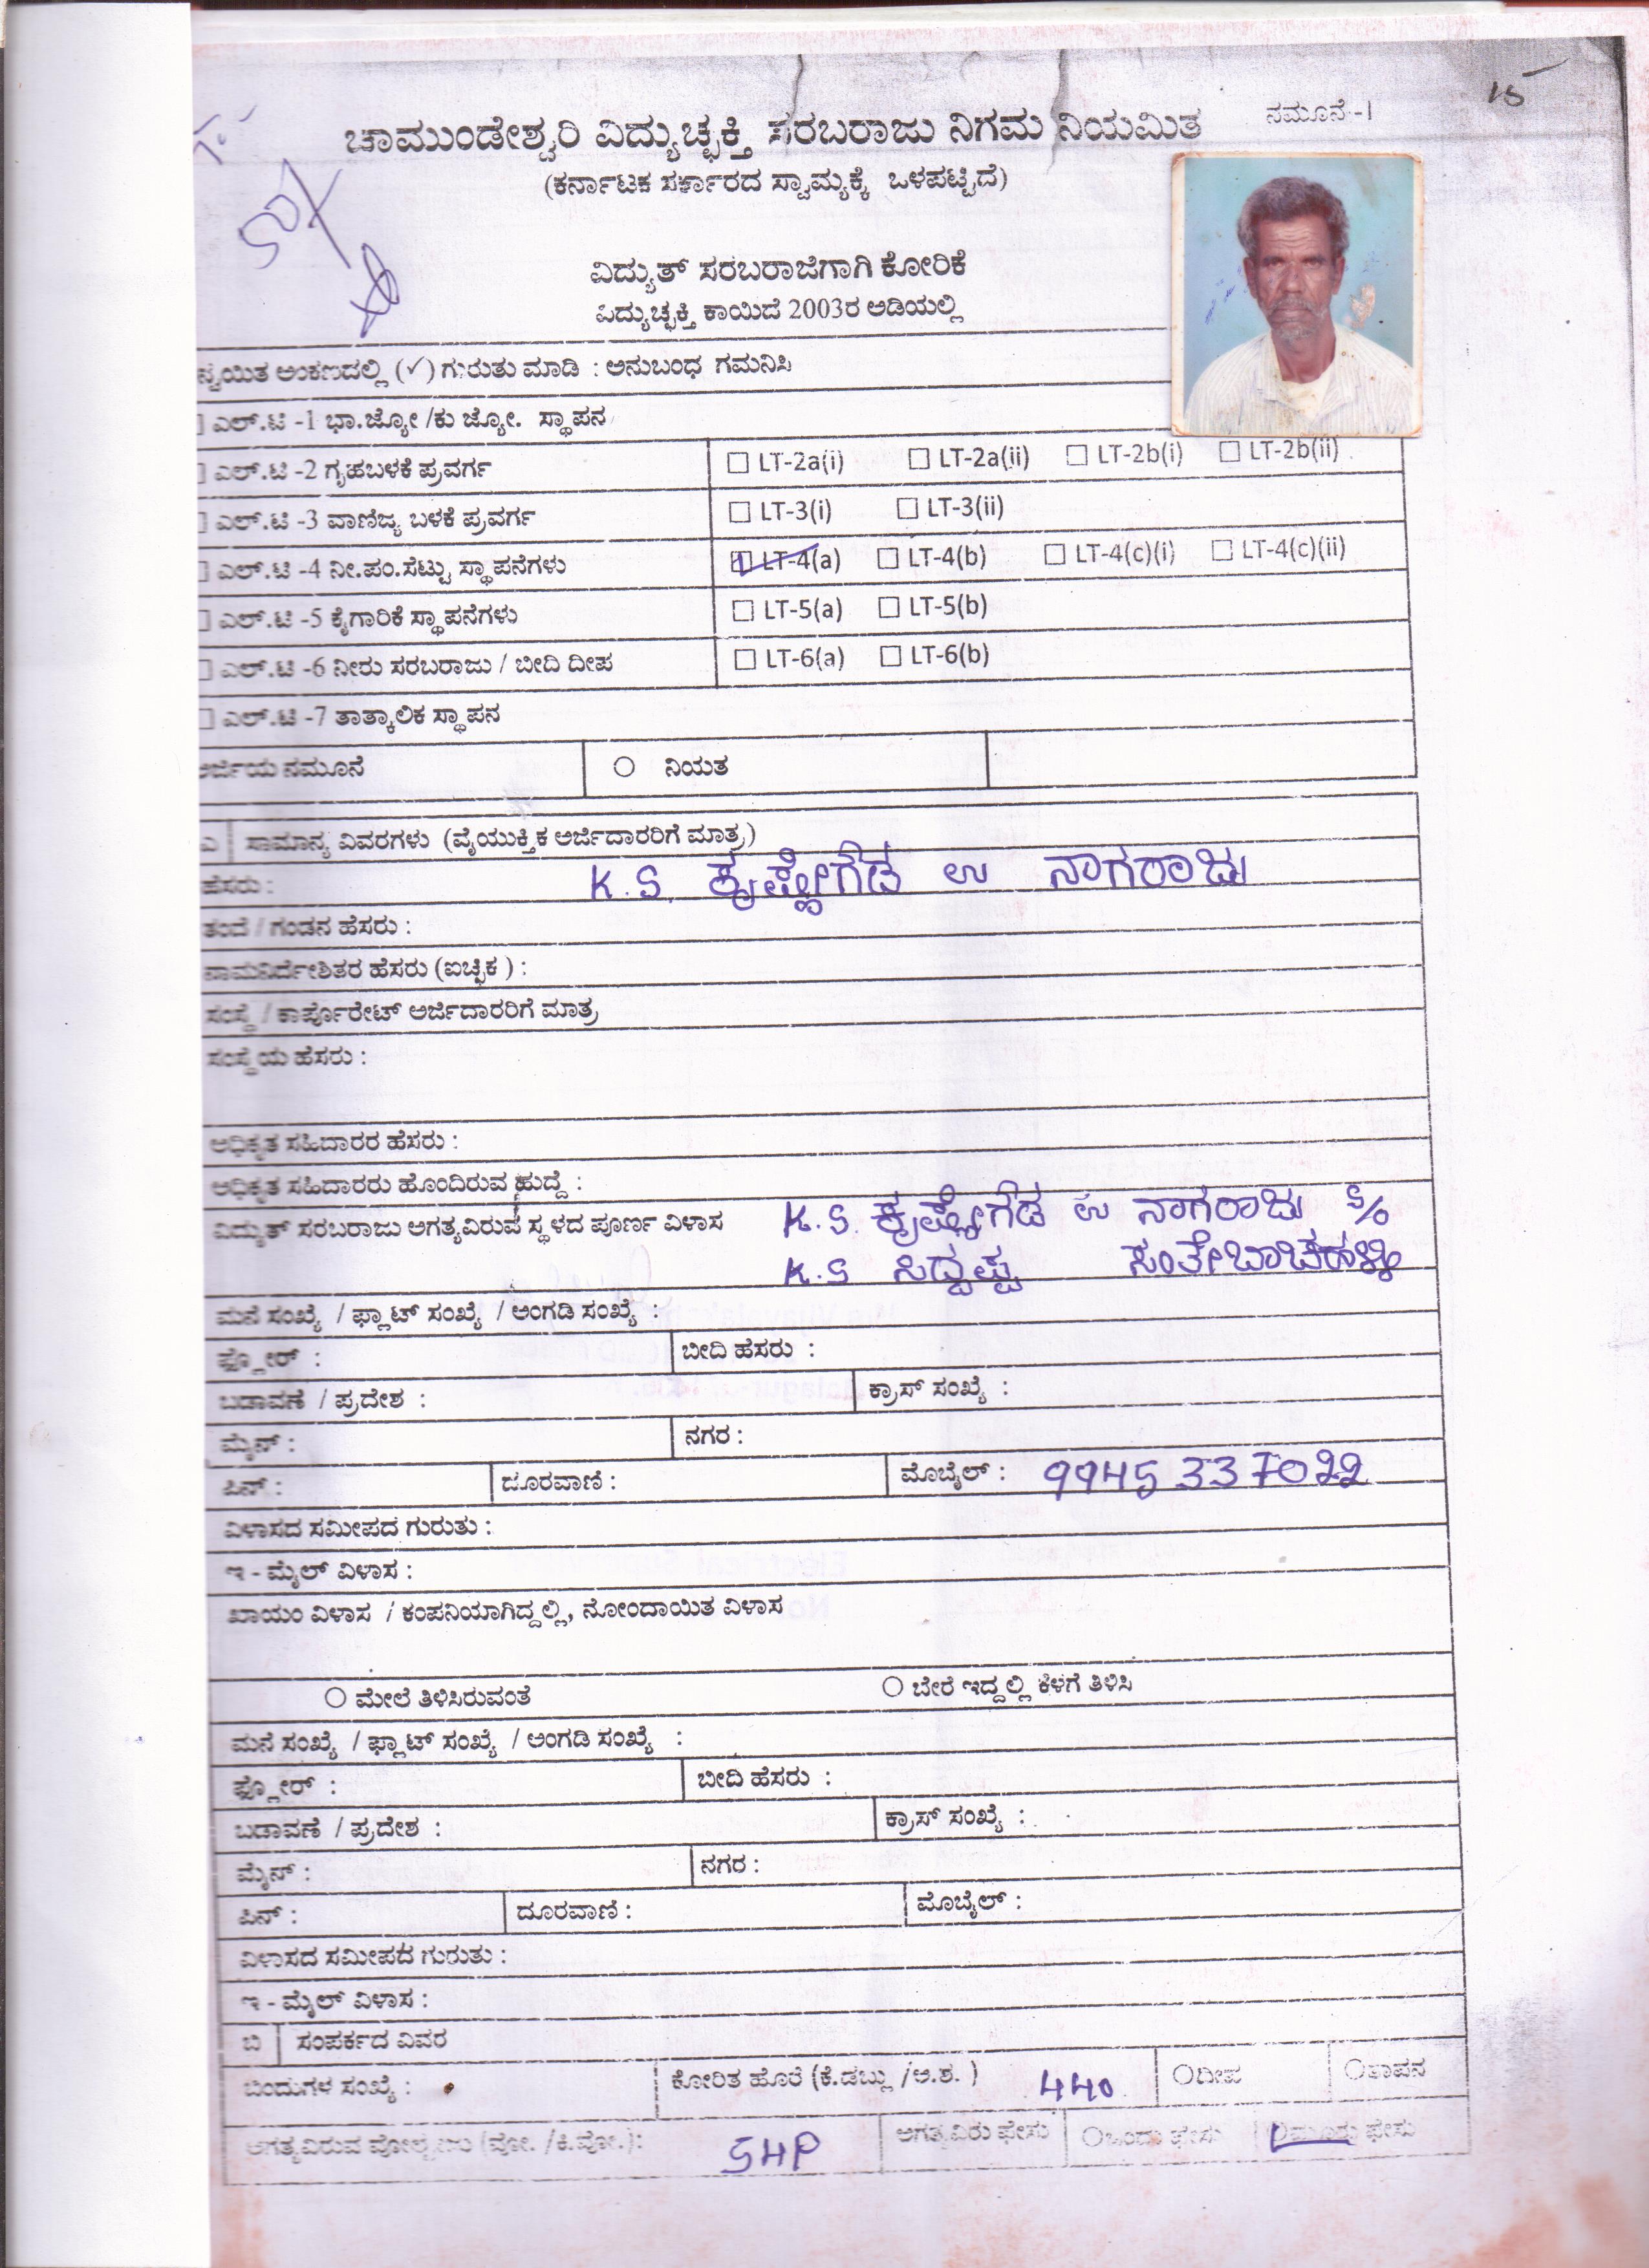 15
ನಮೂನೆ-1
ಚಾಮುಂಡೇಶ್ವರಿ ವಿದ್ಯುಚ್ಛಕ್ತಿ ಸರಬರಾಜು ನಿಗಮ ನಿಯಮಿತ
(ಕರ್ನಾಟಕ ಸರ್ಕಾರದ ಸ್ವಾಮ್ಯಕ್ಕೆ ಒಳಪಟ್ಟಿದೆ)
ವಿದ್ಯುತ್ ಸರಬರಾಜಿಗಾಗಿ ಕೋರಿಕೆ
ವಿದ್ಯುಚ್ಛಕ್ತಿ ಕಾಯಿದೆ 2003ರ ಅಡಿಯಲ್ಲಿ
ನ್ವಯಿತ ಅಂಕಣದಲ್ಲಿ (✓) ಗುರುತು ಮಾಡಿ : ಅನುಬಂಧ ಗಮನಿಸಿ
ಎಲ್.ಟಿ -1 ಭಾ.ಜ್ಯೋ /ಕು ಜ್ಯೋ. ಸ್ಥಾಪನ
ಎಲ್.ಟಿ -2 ಗೃಹಬಳಕೆ ಪ್ರವರ್ಗ LT-2a(i) LT-2a(ii) LT-2b(i) LT-2b(ii)
ಎಲ್.ಟಿ -3 ವಾಣಿಜ್ಯ ಬಳಕೆ ಪ್ರವರ್ಗ LT-3(i) LT-3(ii)
ಎಲ್.ಟಿ -4 ನೀ.ಪಂ.ಸೆಟ್ಟು ಸ್ಥಾಪನೆಗಳು LT-4(a) LT-4(b) LT-4(c)(i) LT-4(c)(ii)
ಎಲ್.ಟಿ -5 ಕೈಗಾರಿಕೆ ಸ್ಥಾಪನೆಗಳು LT-5(a) LT-5(b)
ಎಲ್.ಟಿ -6 ನೀರು ಸರಬರಾಜು / ಬೀದಿ ದೀಪ LT-6(a) LT-6(b)
ಎಲ್.ಟಿ -7 ತಾತ್ಕಾಲಿಕ ಸ್ಥಾಪನ
ಅರ್ಜಿಯ ನಮೂನೆ ನಿಯತ
ಎ ಸಾಮಾನ್ಯ ವಿವರಗಳು (ವೈಯುಕ್ತಿಕ ಅರ್ಜಿದಾರರಿಗೆ ಮಾತ್ರ)
ಹೆಸರು : K.S. ಕೃಷ್ಣೇಗೌಡ ಉ ನಾಗರಾಜು
ತಂದೆ / ಗಂಡನ ಹೆಸರು :
ನಾಮನಿರ್ದೇಶಿತರ ಹೆಸರು (ಐಚ್ಛಿಕ ) :
ಸಂಸ್ಥೆ / ಕಾರ್ಪೊರೇಟ್ ಅರ್ಜಿದಾರರಿಗೆ ಮಾತ್ರ
ಸಂಸ್ಥೆಯ ಹೆಸರು :
ಅಧಿಕೃತ ಸಹಿದಾರರ ಹೆಸರು :
ಅಧಿಕೃತ ಸಹಿದಾರರು ಹೊಂದಿರುವ ಹುದ್ದೆ :
ವಿದ್ಯುತ್ ಸರಬರಾಜು ಅಗತ್ಯವಿರುವ ಸ್ಥಳದ ಪೂರ್ಣ ವಿಳಾಸ K.S. ಕೃಷ್ಣೇಗೌಡ ಉ ನಾಗರಾಜು S/o
K.S ಸಿದ್ದಪ್ಪ ಸಂತೇಬಾಚಹಳ್ಳಿ
ಮನೆ ಸಂಖ್ಯೆ / ಫ್ಲಾಟ್ ಸಂಖ್ಯೆ / ಅಂಗಡಿ ಸಂಖ್ಯೆ :
ಫ್ಲೋರ್ : ಬೀದಿ ಹೆಸರು :
ಬಡಾವಣೆ / ಪ್ರದೇಶ : ಕ್ರಾಸ್ ಸಂಖ್ಯೆ :
ಮೈನ್ : ನಗರ :
ಪಿನ್ : ದೂರವಾಣಿ : ಮೊಬೈಲ್ : 9945337022
ವಿಳಾಸದ ಸಮೀಪದ ಗುರುತು :
ಇ - ಮೈಲ್ ವಿಳಾಸ :
ಖಾಯಂ ವಿಳಾಸ / ಕಂಪನಿಯಾಗಿದ್ದಲ್ಲಿ, ನೋಂದಾಯಿತ ವಿಳಾಸ
ಮೇಲೆ ತಿಳಿಸಿರುವಂತೆ ಬೇರೆ ಇದ್ದಲ್ಲಿ ಕೆಳಗೆ ತಿಳಿಸಿ
ಮನೆ ಸಂಖ್ಯೆ / ಫ್ಲಾಟ್ ಸಂಖ್ಯೆ / ಅಂಗಡಿ ಸಂಖ್ಯೆ :
ಫ್ಲೋರ್ : ಬೀದಿ ಹೆಸರು :
ಬಡಾವಣೆ / ಪ್ರದೇಶ : ಕ್ರಾಸ್ ಸಂಖ್ಯೆ :
ಮೈನ್ : ನಗರ :
ಪಿನ್ : ದೂರವಾಣಿ : ಮೊಬೈಲ್ :
ವಿಳಾಸದ ಸಮೀಪದ ಗುರುತು :
ಇ - ಮೈಲ್ ವಿಳಾಸ :
ಬಿ ಸಂಪರ್ಕದ ವಿವರ
ಬಿಂದುಗಳ ಸಂಖ್ಯೆ : ಕೋರಿತ ಹೊರೆ (ಕೆ.ಡಬ್ಲು /ಅ.ಶ. ) 440 ದೀಪ ತಾಪನ
ಅಗತ್ಯವಿರುವ ವೋಲ್ಟೇಜು (ವೋ. /ಕಿ.ವೋ.): 5HP ಅಗತ್ಯವಿರು ಫೇಸು ಒಂದು ಫೇಸು ಮೂರು ಫೇಸು